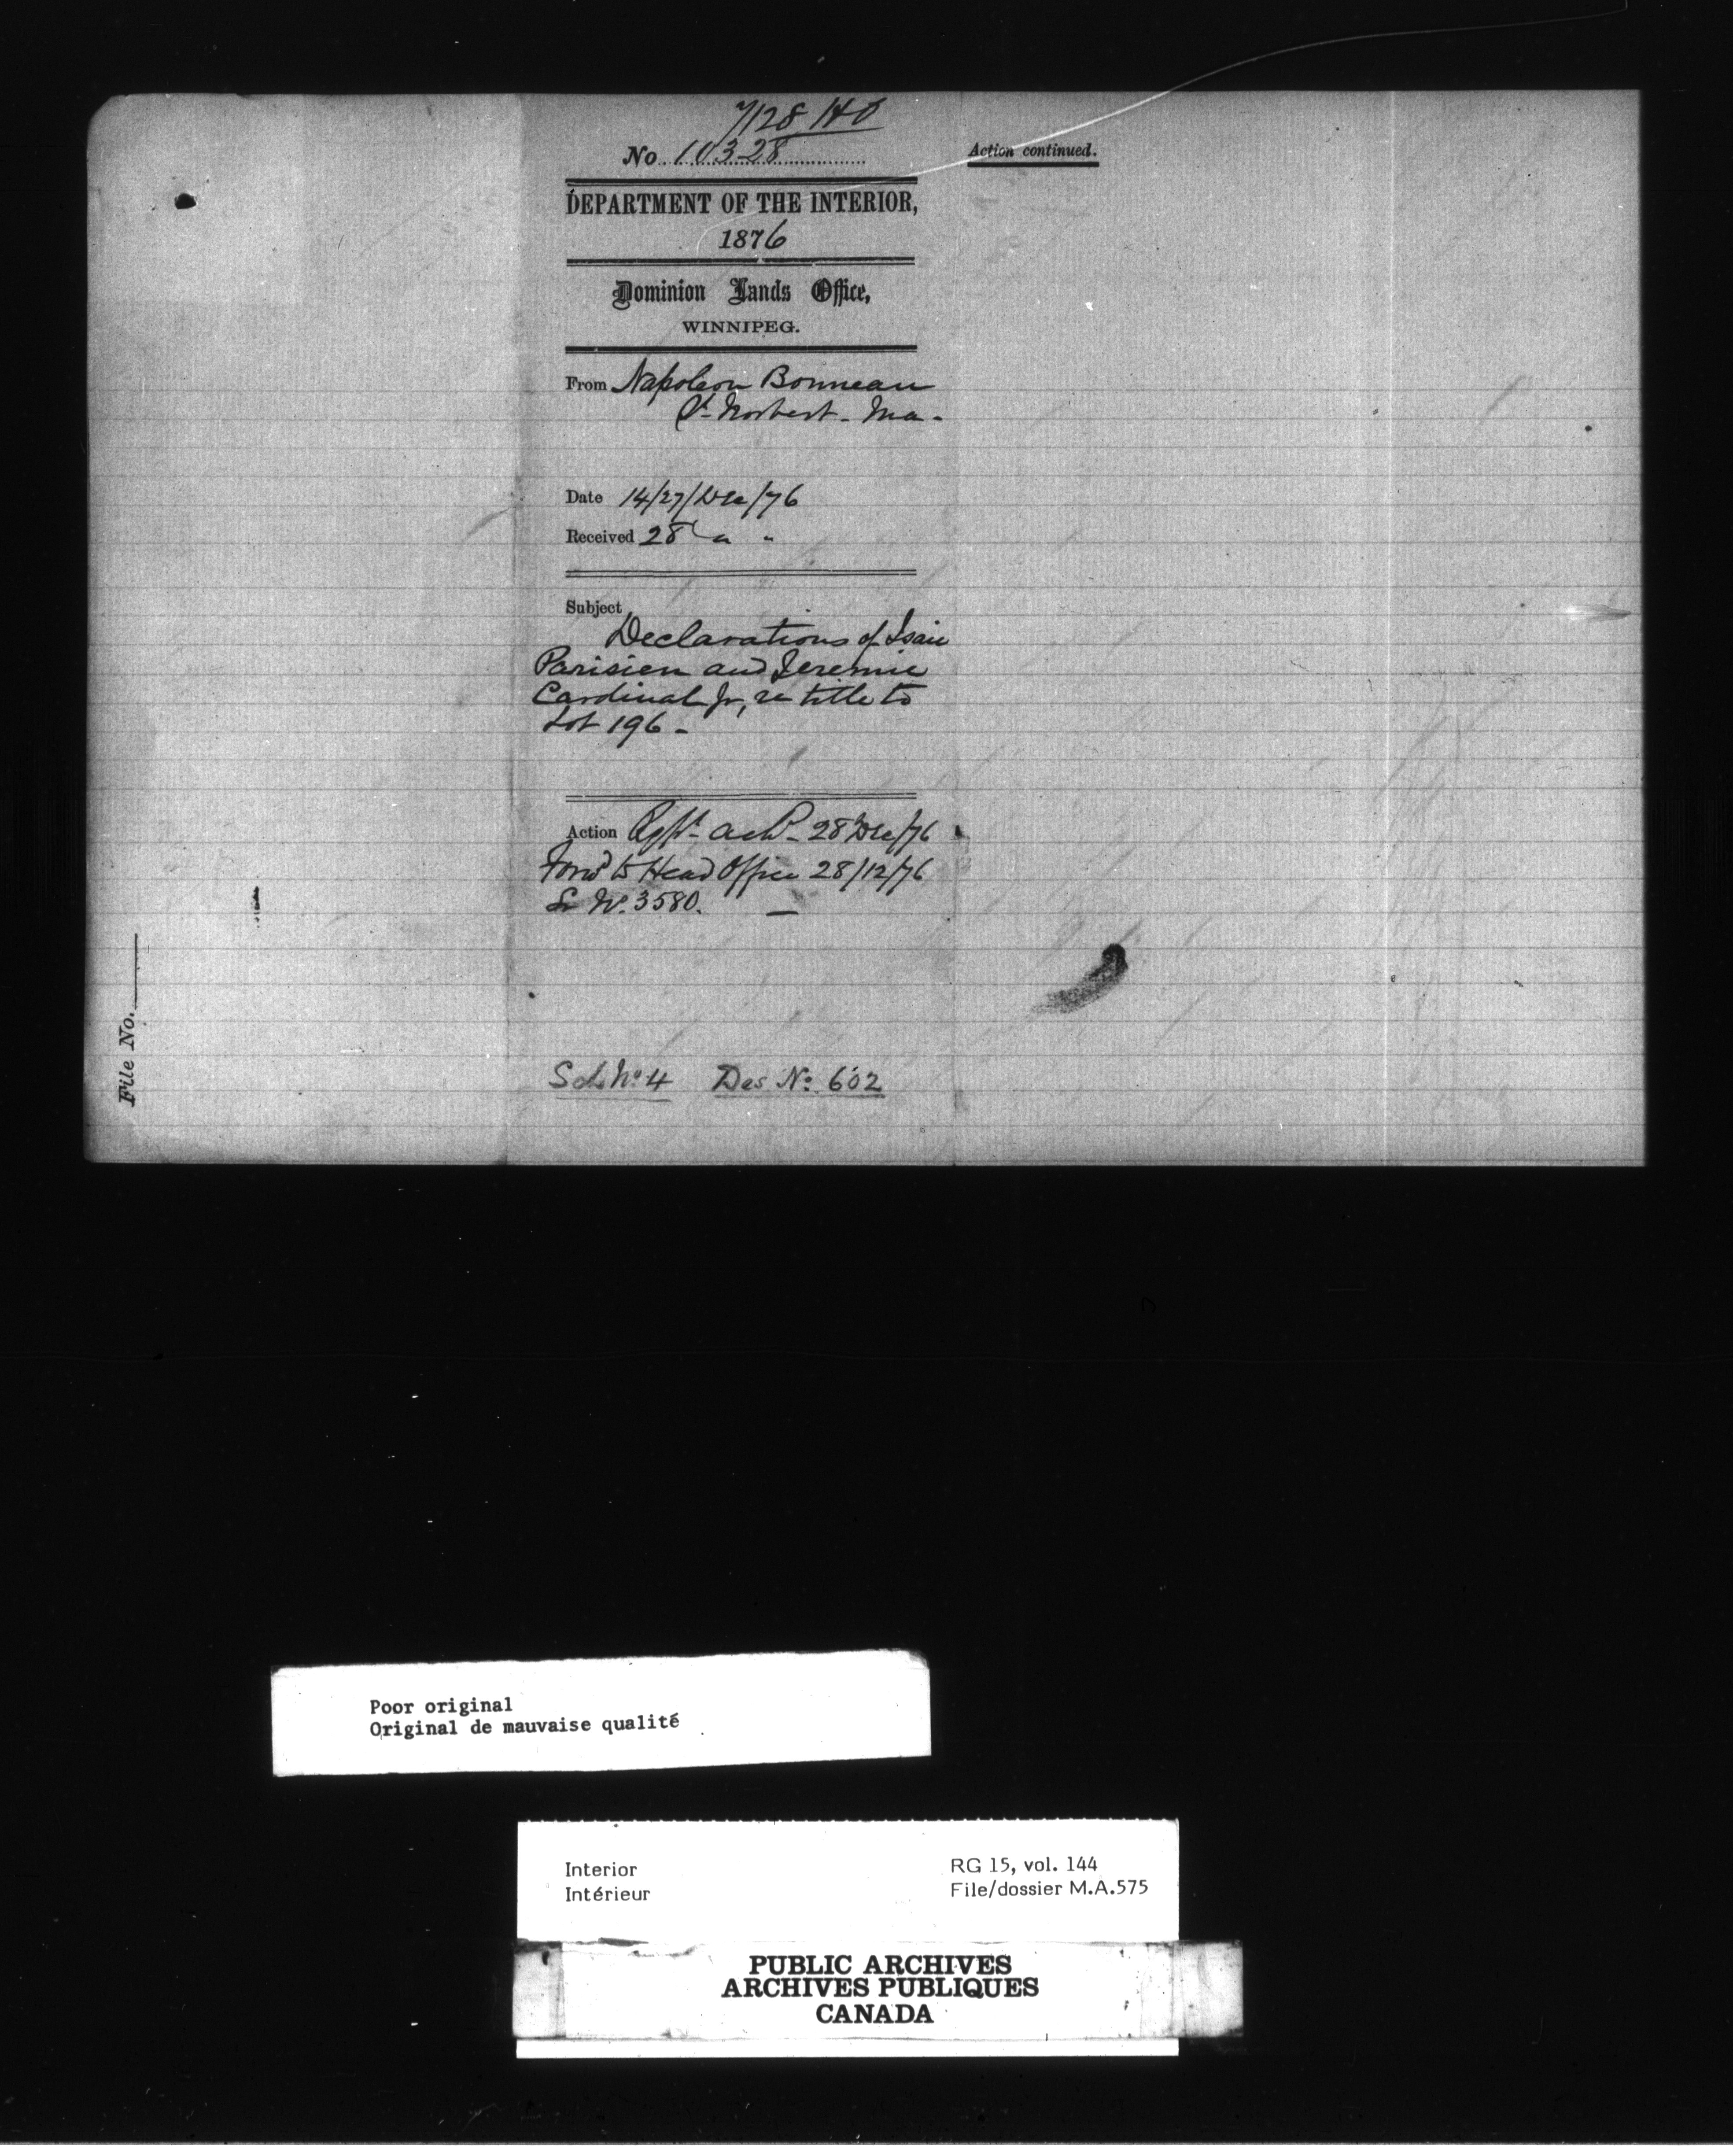 7128 HO
No 10328
Action continued.
DEPARTMENT OF THE INTERIOR,
1876
Dominion Lands Office,
WINNIPEG.
From Napoleon Bonneau
St Norbert - Ma -
Date 14/27/Dec/76
Received 28 " "
Subject
Declarations of Isaie
Parisien and Jeremie
Cardinal Jr, re title to
Lot 196 -
Action ackd - 28 Dec/76
Forwd to Head Office 28/12/76
No. 3580. —
File No.
Sch No 4 Des No. 602
Poor original
Original de mauvaise qualité
Interior
Intérieur
RG 15, vol. 144
File/dossier M.A.575
PUBLIC ARCHIVES
ARCHIVES PUBLIQUES
CANADA